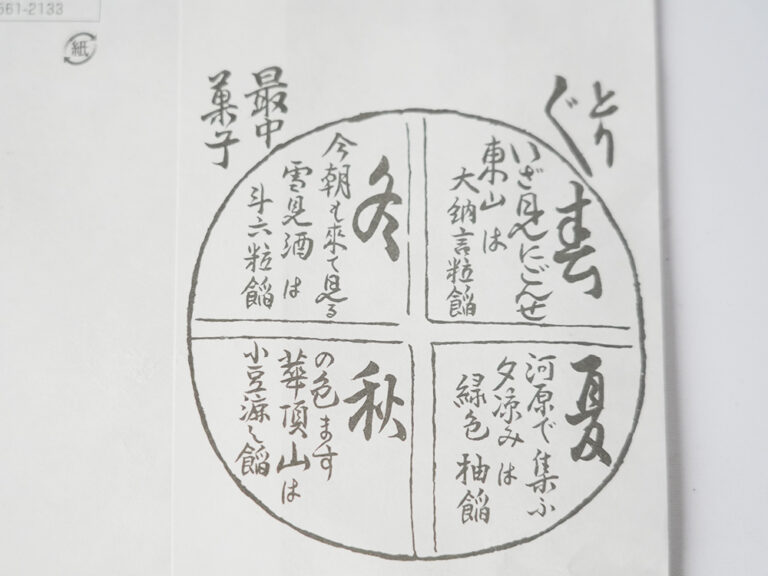 561-2133
紙
とり
ぐ
最中
菓子
春
いざ見にごんせ
東山は
大納言粒餡
夏
河原で集ふ
夕凉みは
緑色 柚餡
秋
の色ます
華頂山は
小豆漉し餡
冬
今朝も來て見る
雪見酒は
斗六粒餡